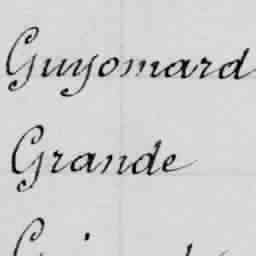 Guyomard
Grande